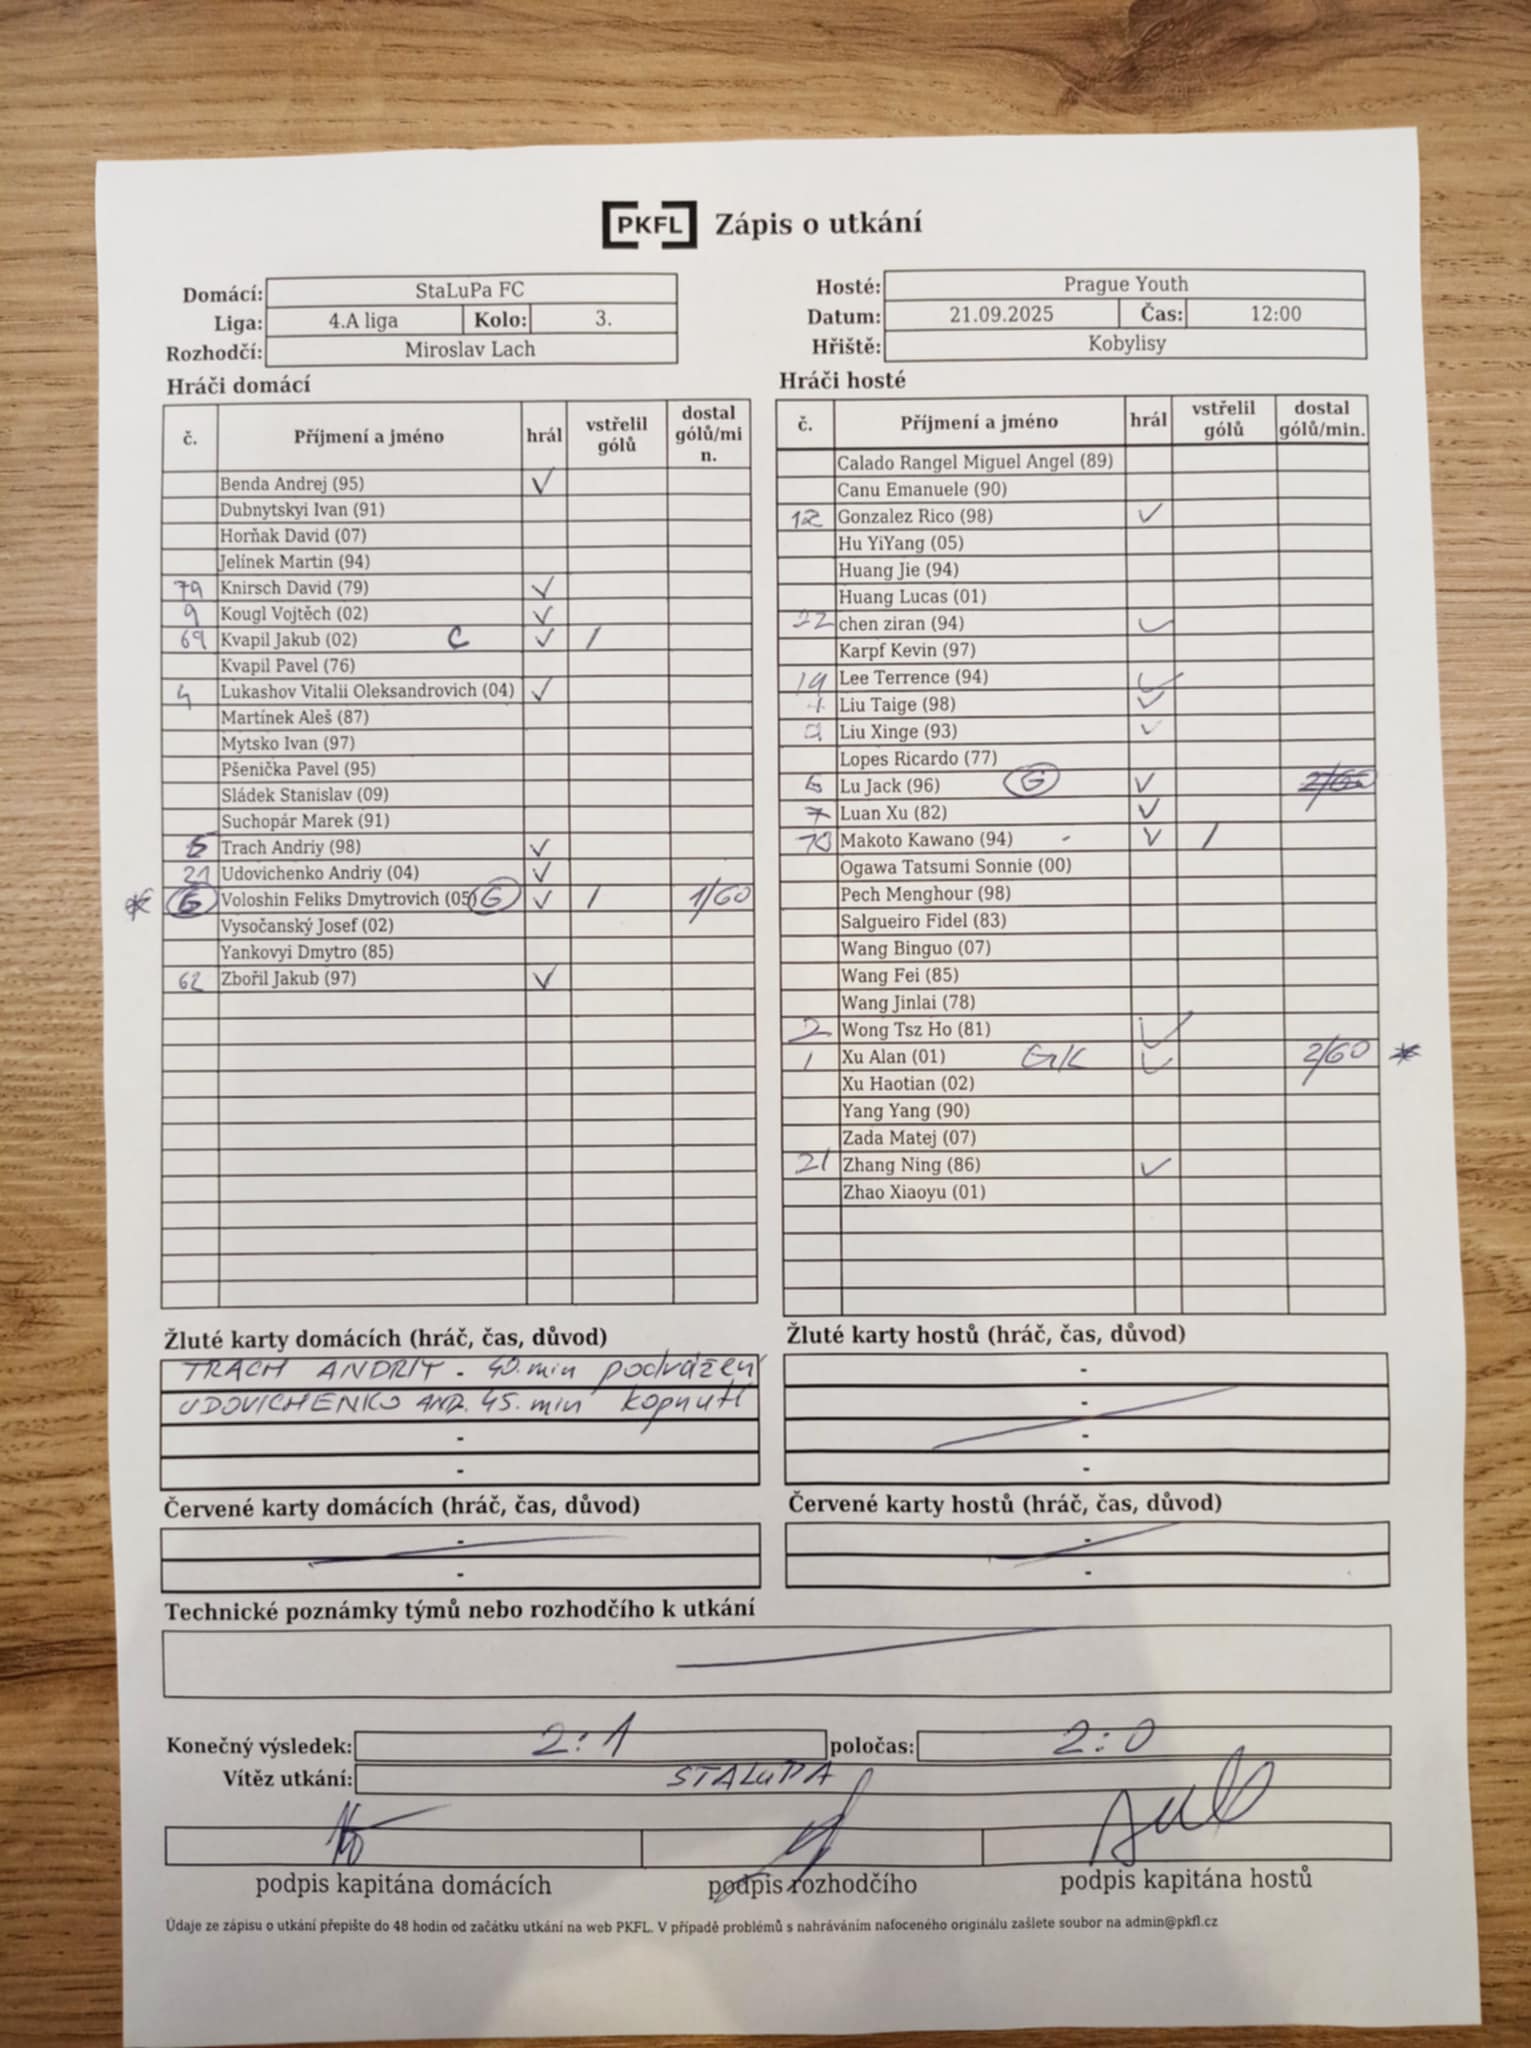 PKFL Zápis o utkání
Domácí: StaLuPa FC
Liga: 4.A liga Kolo: 3.
Rozhodčí: Miroslav Lach
Hosté: Prague Youth
Datum: 21.09.2025 Čas: 12:00
Hřiště: Kobylisy
Hráči domácí
č. Příjmení a jméno hrál vstřelil gólů dostal gólů/min.
Benda Andrej (95) ✓
Dubnytskyi Ivan (91)
Horňak David (07)
Jelínek Martin (94)
79 Knirsch David (79) ✓
9 Kougl Vojtěch (02) ✓
69 Kvapil Jakub (02) C ✓ /
Kvapil Pavel (76)
4 Lukashov Vitalii Oleksandrovich (04) ✓
Martínek Aleš (87)
Mytsko Ivan (97)
Pšenička Pavel (95)
Sládek Stanislav (09)
Suchopár Marek (91)
5 Trach Andriy (98) ✓
21 Udovichenko Andriy (04) ✓
* G Voloshin Feliks Dmytrovich (05) G ✓ / 1/60
Vysočanský Josef (02)
Yankovyi Dmytro (85)
62 Zbořil Jakub (97) ✓
Hráči hosté
č. Příjmení a jméno hrál vstřelil gólů dostal gólů/min.
Calado Rangel Miguel Angel (89)
Canu Emanuele (90)
12 Gonzalez Rico (98) ✓
Hu YiYang (05)
Huang Jie (94)
Huang Lucas (01)
22 chen ziran (94) ✓
Karpf Kevin (97)
19 Lee Terrence (94) ✓
Liu Taige (98) ✓
Liu Xinge (93) ✓
Lopes Ricardo (77)
Lu Jack (96) G ✓ 2/60
7 Luan Xu (82) ✓
Makoto Kawano (94) - ✓ /
Ogawa Tatsumi Sonnie (00)
Pech Menghour (98)
Salgueiro Fidel (83)
Wang Binguo (07)
Wang Fei (85)
Wang Jinlai (78)
2 Wong Tsz Ho (81) ✓
1 Xu Alan (01) GK ✓ 2/60 *
Xu Haotian (02)
Yang Yang (90)
Zada Matej (07)
21 Zhang Ning (86) ✓
Zhao Xiaoyu (01)
Žluté karty domácích (hráč, čas, důvod)
TRACH ANDRIY - 40. min podrážení
UDOVICHENKO AND. 45. min kopnutí
-
-
Žluté karty hostů (hráč, čas, důvod)
-
-
-
-
Červené karty domácích (hráč, čas, důvod)
-
-
Červené karty hostů (hráč, čas, důvod)
-
-
Technické poznámky týmů nebo rozhodčího k utkání
Konečný výsledek: 2:1 poločas: 2:0
Vítěz utkání: STALUPA
podpis kapitána domácích podpis rozhodčího podpis kapitána hostů
Údaje ze zápisu o utkání přepište do 48 hodin od začátku utkání na web PKFL. V případě problémů s nahráváním nafoceného originálu zašlete soubor na admin@pkfl.cz